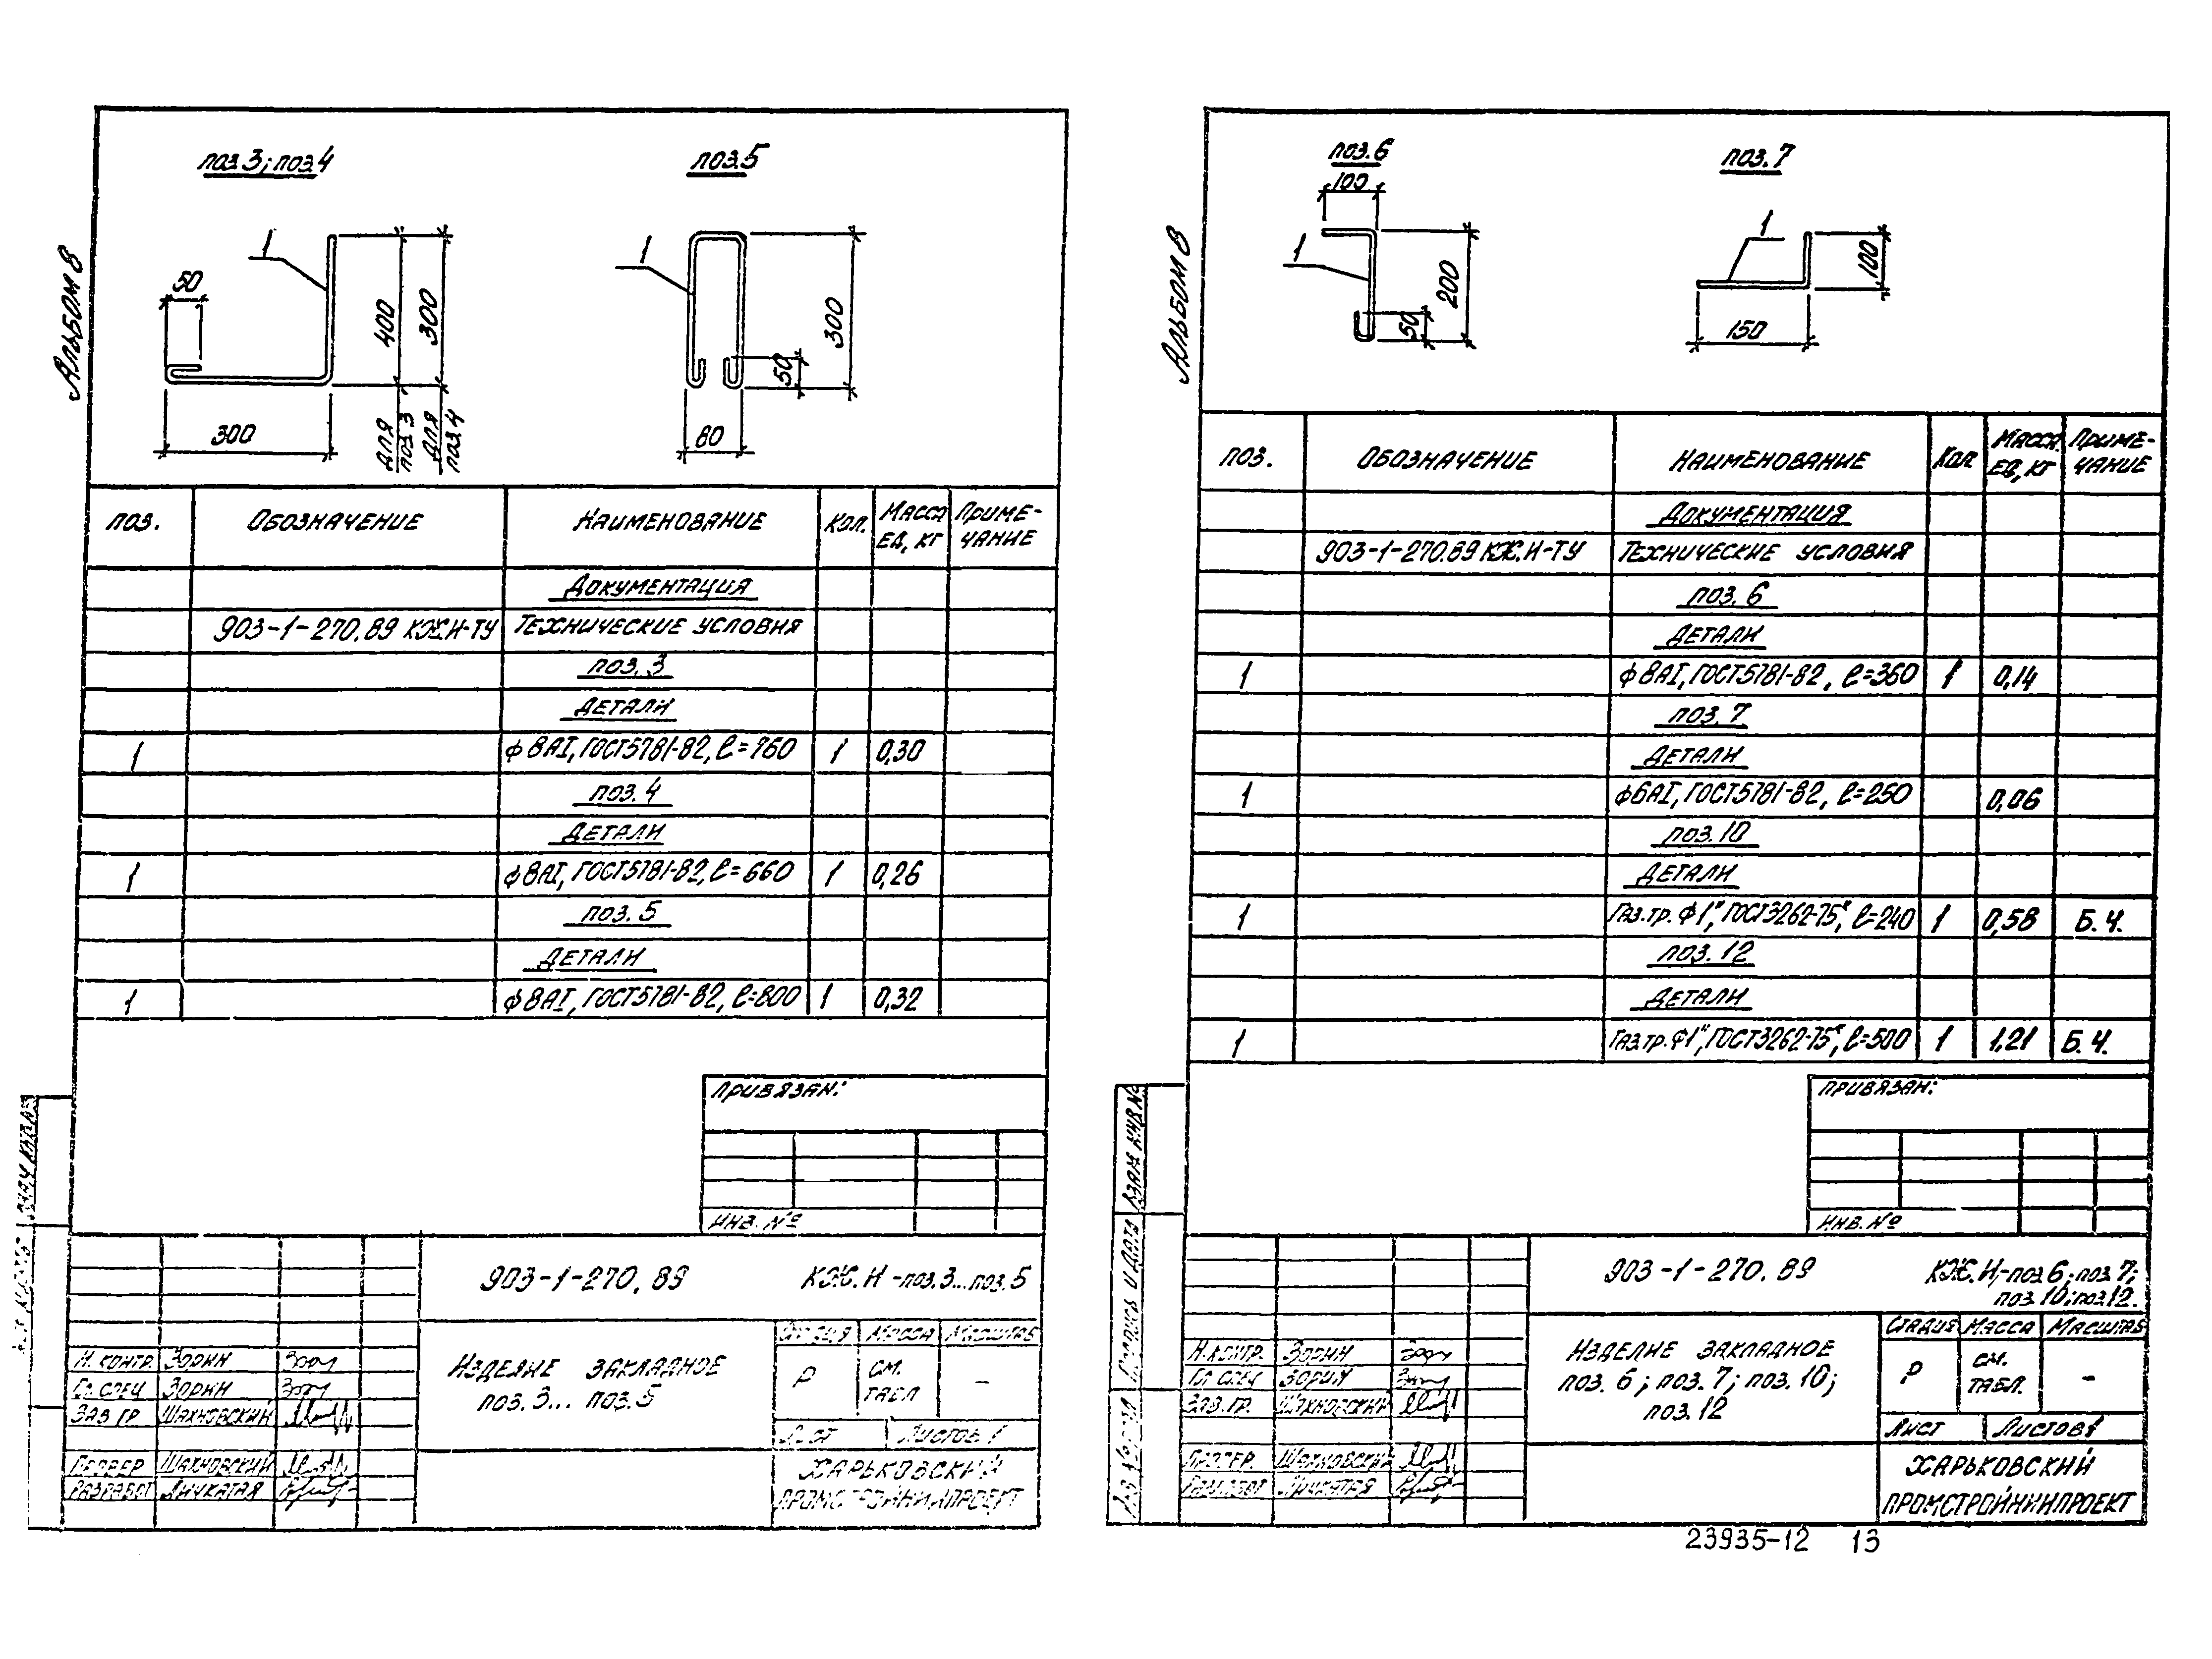 поз.3; поз.4
поз.5
1
50
400
300
300
для поз 3
для поз.4
1
300
50
80
Альбом 8
поз. Обозначение Наименование Кол. Масса ед, кг Примечание
Документация
903-1-270.89 КЖ.И-ТУ Технические условия
поз. 3
Детали
1 ф8АI, ГОСТ5781-82, ℓ=760 1 0,30
поз.4
Детали
1 ф8АI, ГОСТ5781-82, ℓ=660 1 0,26
поз. 5
Детали
1 ф8АI, ГОСТ5781-82, ℓ=800 1 0,32
Привязан:
Инв. №
903-1-270.89 КЖ.И-поз.3...поз.5
Изделие закладное
поз. 3... поз.5
Стадия Масса Масштаб
Р см. табл –
Лист Листов 1
Харьковский
Промстройниипроект
Н. контр. Зорин
Гл. спец Зорин
Зав гр Шахновский
Провер Шахновский
Разработ Личкатая
поз.6
100
1
200
50
поз.7
1
100
150
Альбом 8
поз. Обозначение Наименование Кол Масса ед, кг Примечание
Документация
903-1-270.89 КЖ.И-ТУ Технические условия
поз. 6
Детали
1 ф8АI, ГОСТ5781-82, ℓ=360 1 0,14
поз. 7
Детали
1 ф6АI, ГОСТ5781-82, ℓ=250 0,06
поз.10
Детали
1 Газ.тр. ф1", ГОСТ3262-75*, ℓ=240 1 0,58 Б.Ч.
поз. 12
Детали
1 Газ.тр. ф1", ГОСТ3262-75*, ℓ=500 1 1,21 Б.Ч.
Привязан:
Инв. №
903-1-270.89 КЖ.И-поз 6; поз 7;
поз 10; поз 12.
Изделие закладное
поз. 6; поз. 7; поз. 10;
поз.12
Стадия Масса Масштаб
Р см. табл. –
Лист Листов 1
Харьковский
Промстройниипроект
Н.контр. Зорин
Гл спец Зорин
Зав. гр. Шахновский
Провер. Шахновский
Разработ Личкатая
Взам инв.№
Подпись и дата
23935-12 13